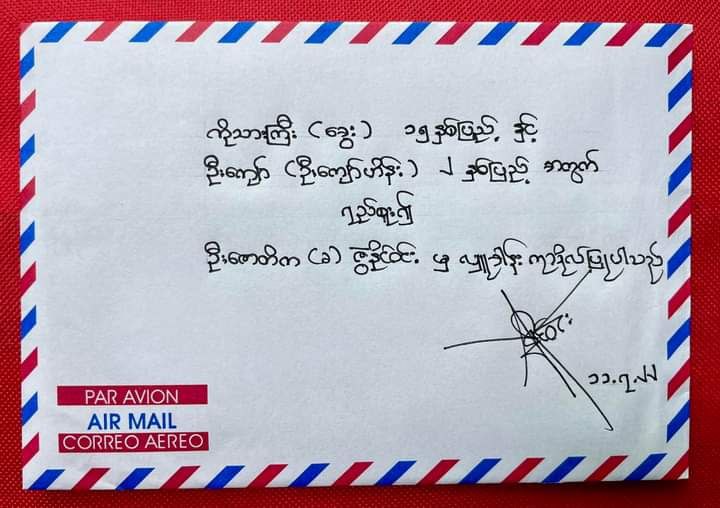 ကိုသားကြီး (ခွေး) ၁၅ နှစ်ပြည့် နှင့်
ဦးကျော် (ဦးကျော်ဟိန်း) ၂ နှစ်ပြည့် အတွက်
ရည်စူး၍
ဦးဇောတိက (ခ) ဇွဲနိုင်ဝင်း မှ လှူဒါန်း ကုသိုလ်ပြုပါသည်
၁၁.၇.၂၂
PAR AVION
AIR MAIL
CORREO AEREO